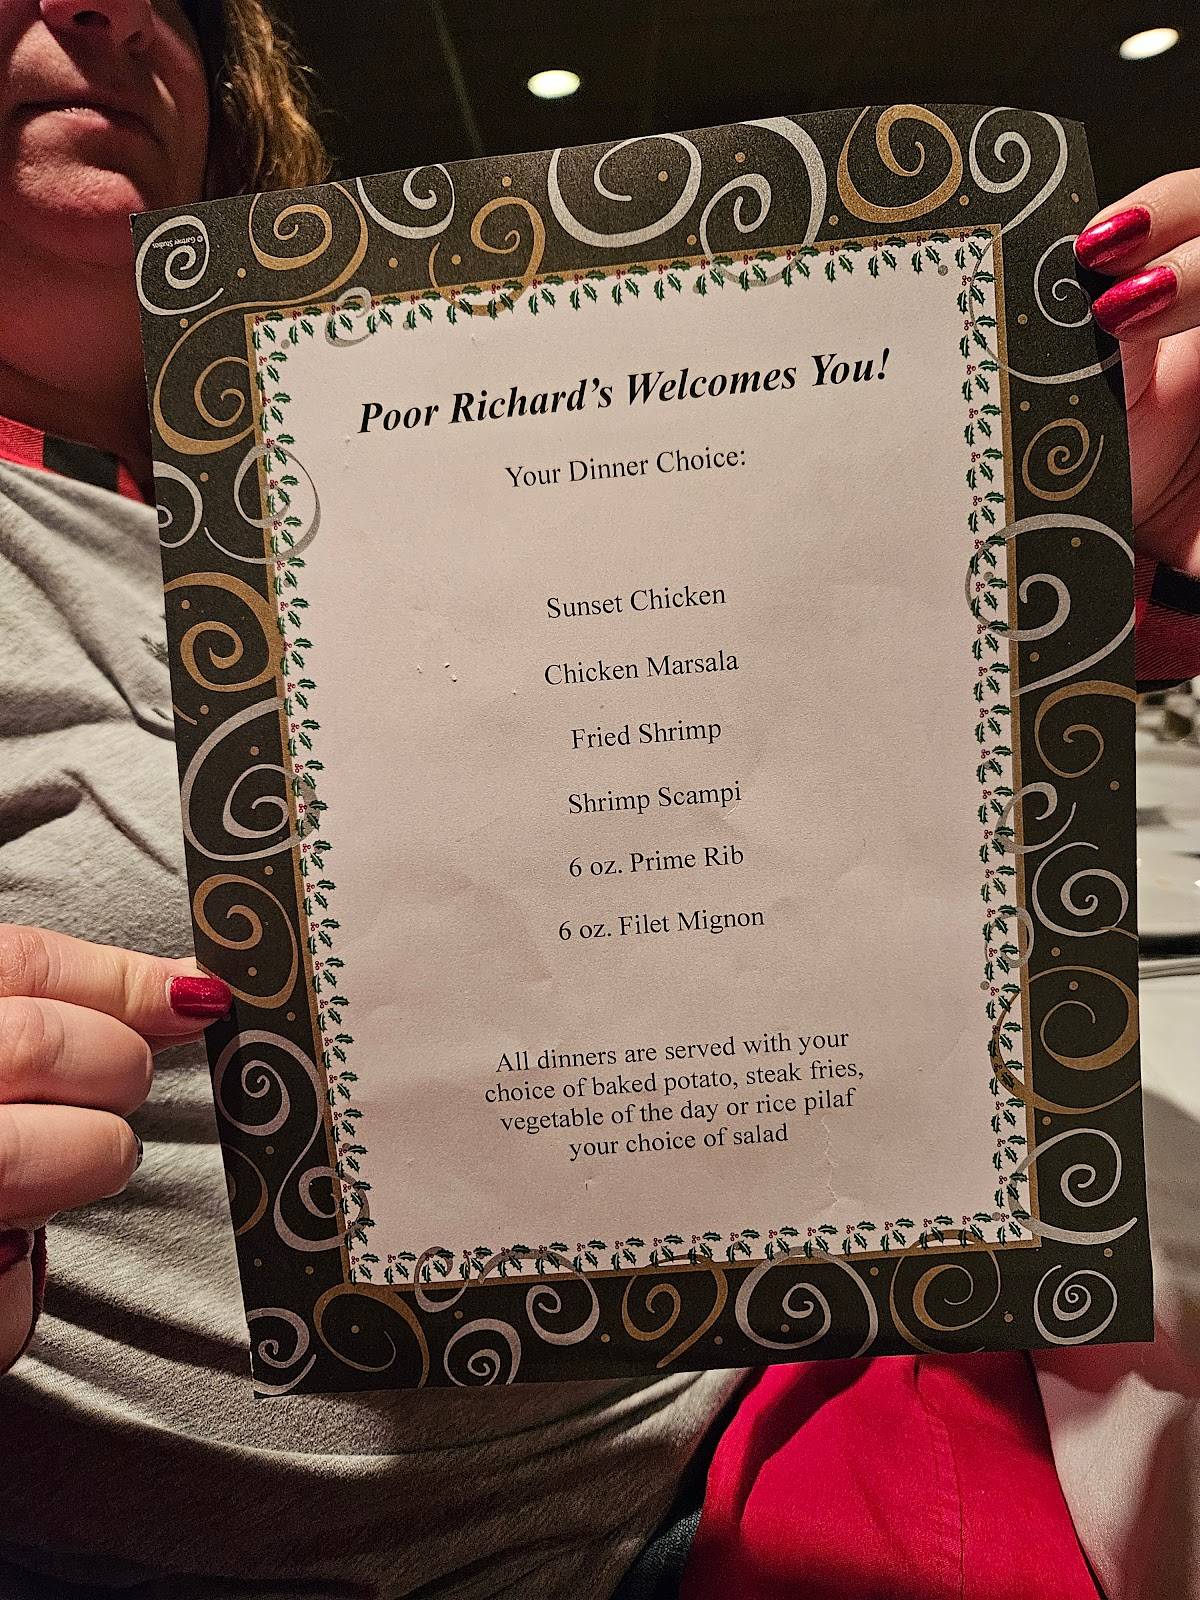 © Gartner Studios
Poor Richard's Welcomes You!
Your Dinner Choice:
Sunset Chicken
Chicken Marsala
Fried Shrimp
Shrimp Scampi
6 oz. Prime Rib
6 oz. Filet Mignon
All dinners are served with your
choice of baked potato, steak fries,
vegetable of the day or rice pilaf
your choice of salad